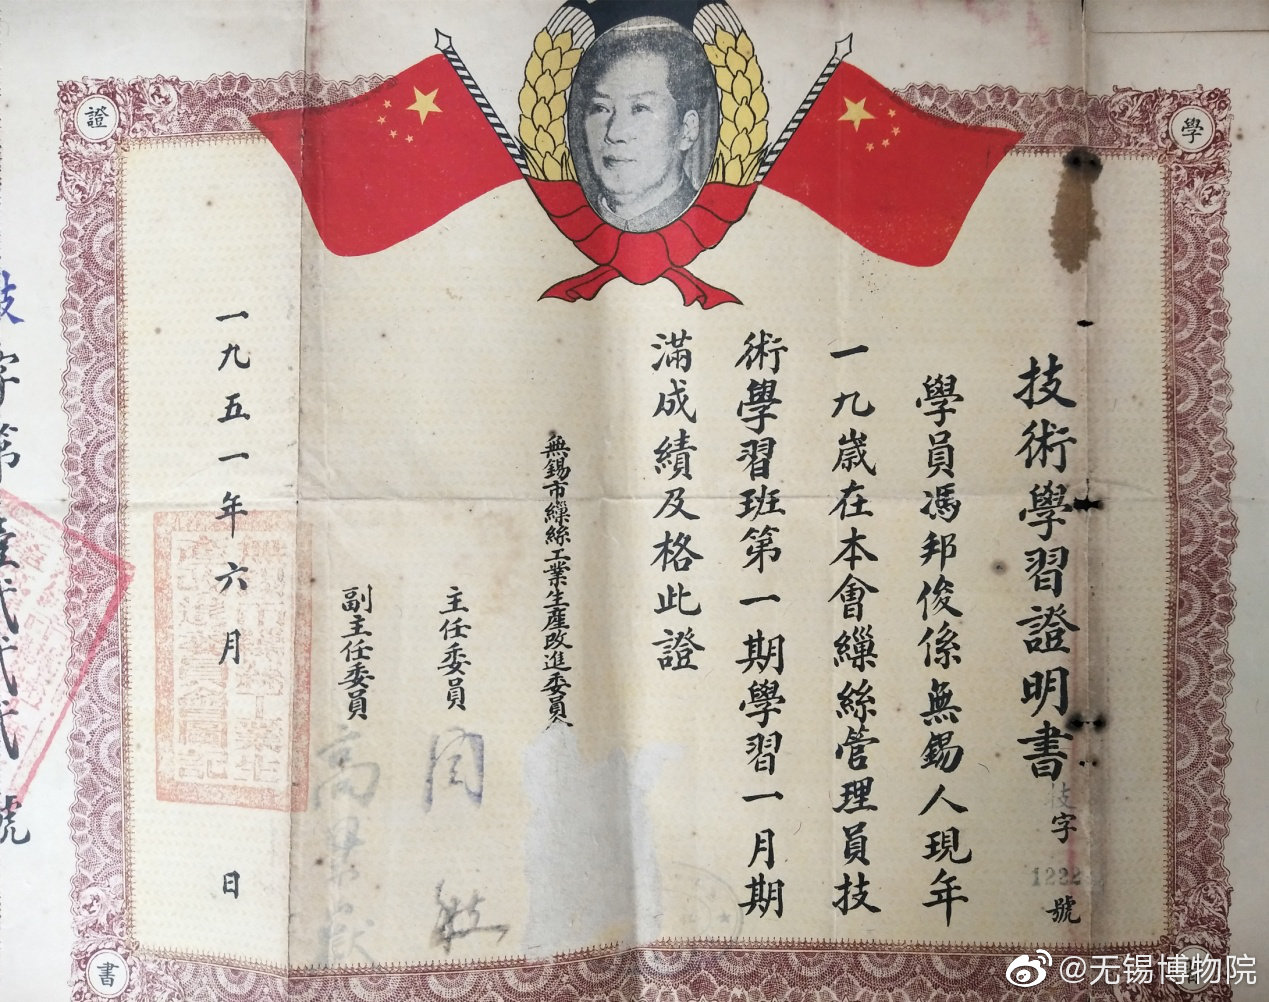 技術學習證明書
技字
號
學員馮邦俊係無錫人現年
一九歲在本會繅絲管理員技
術學習班第一期學習一月期
滿成績及格此證
無錫市繅絲工業生產改進委員會
主任委員
副主任委員
一九五一年六月 日
學
證
書
技字第
號
@无锡博物院